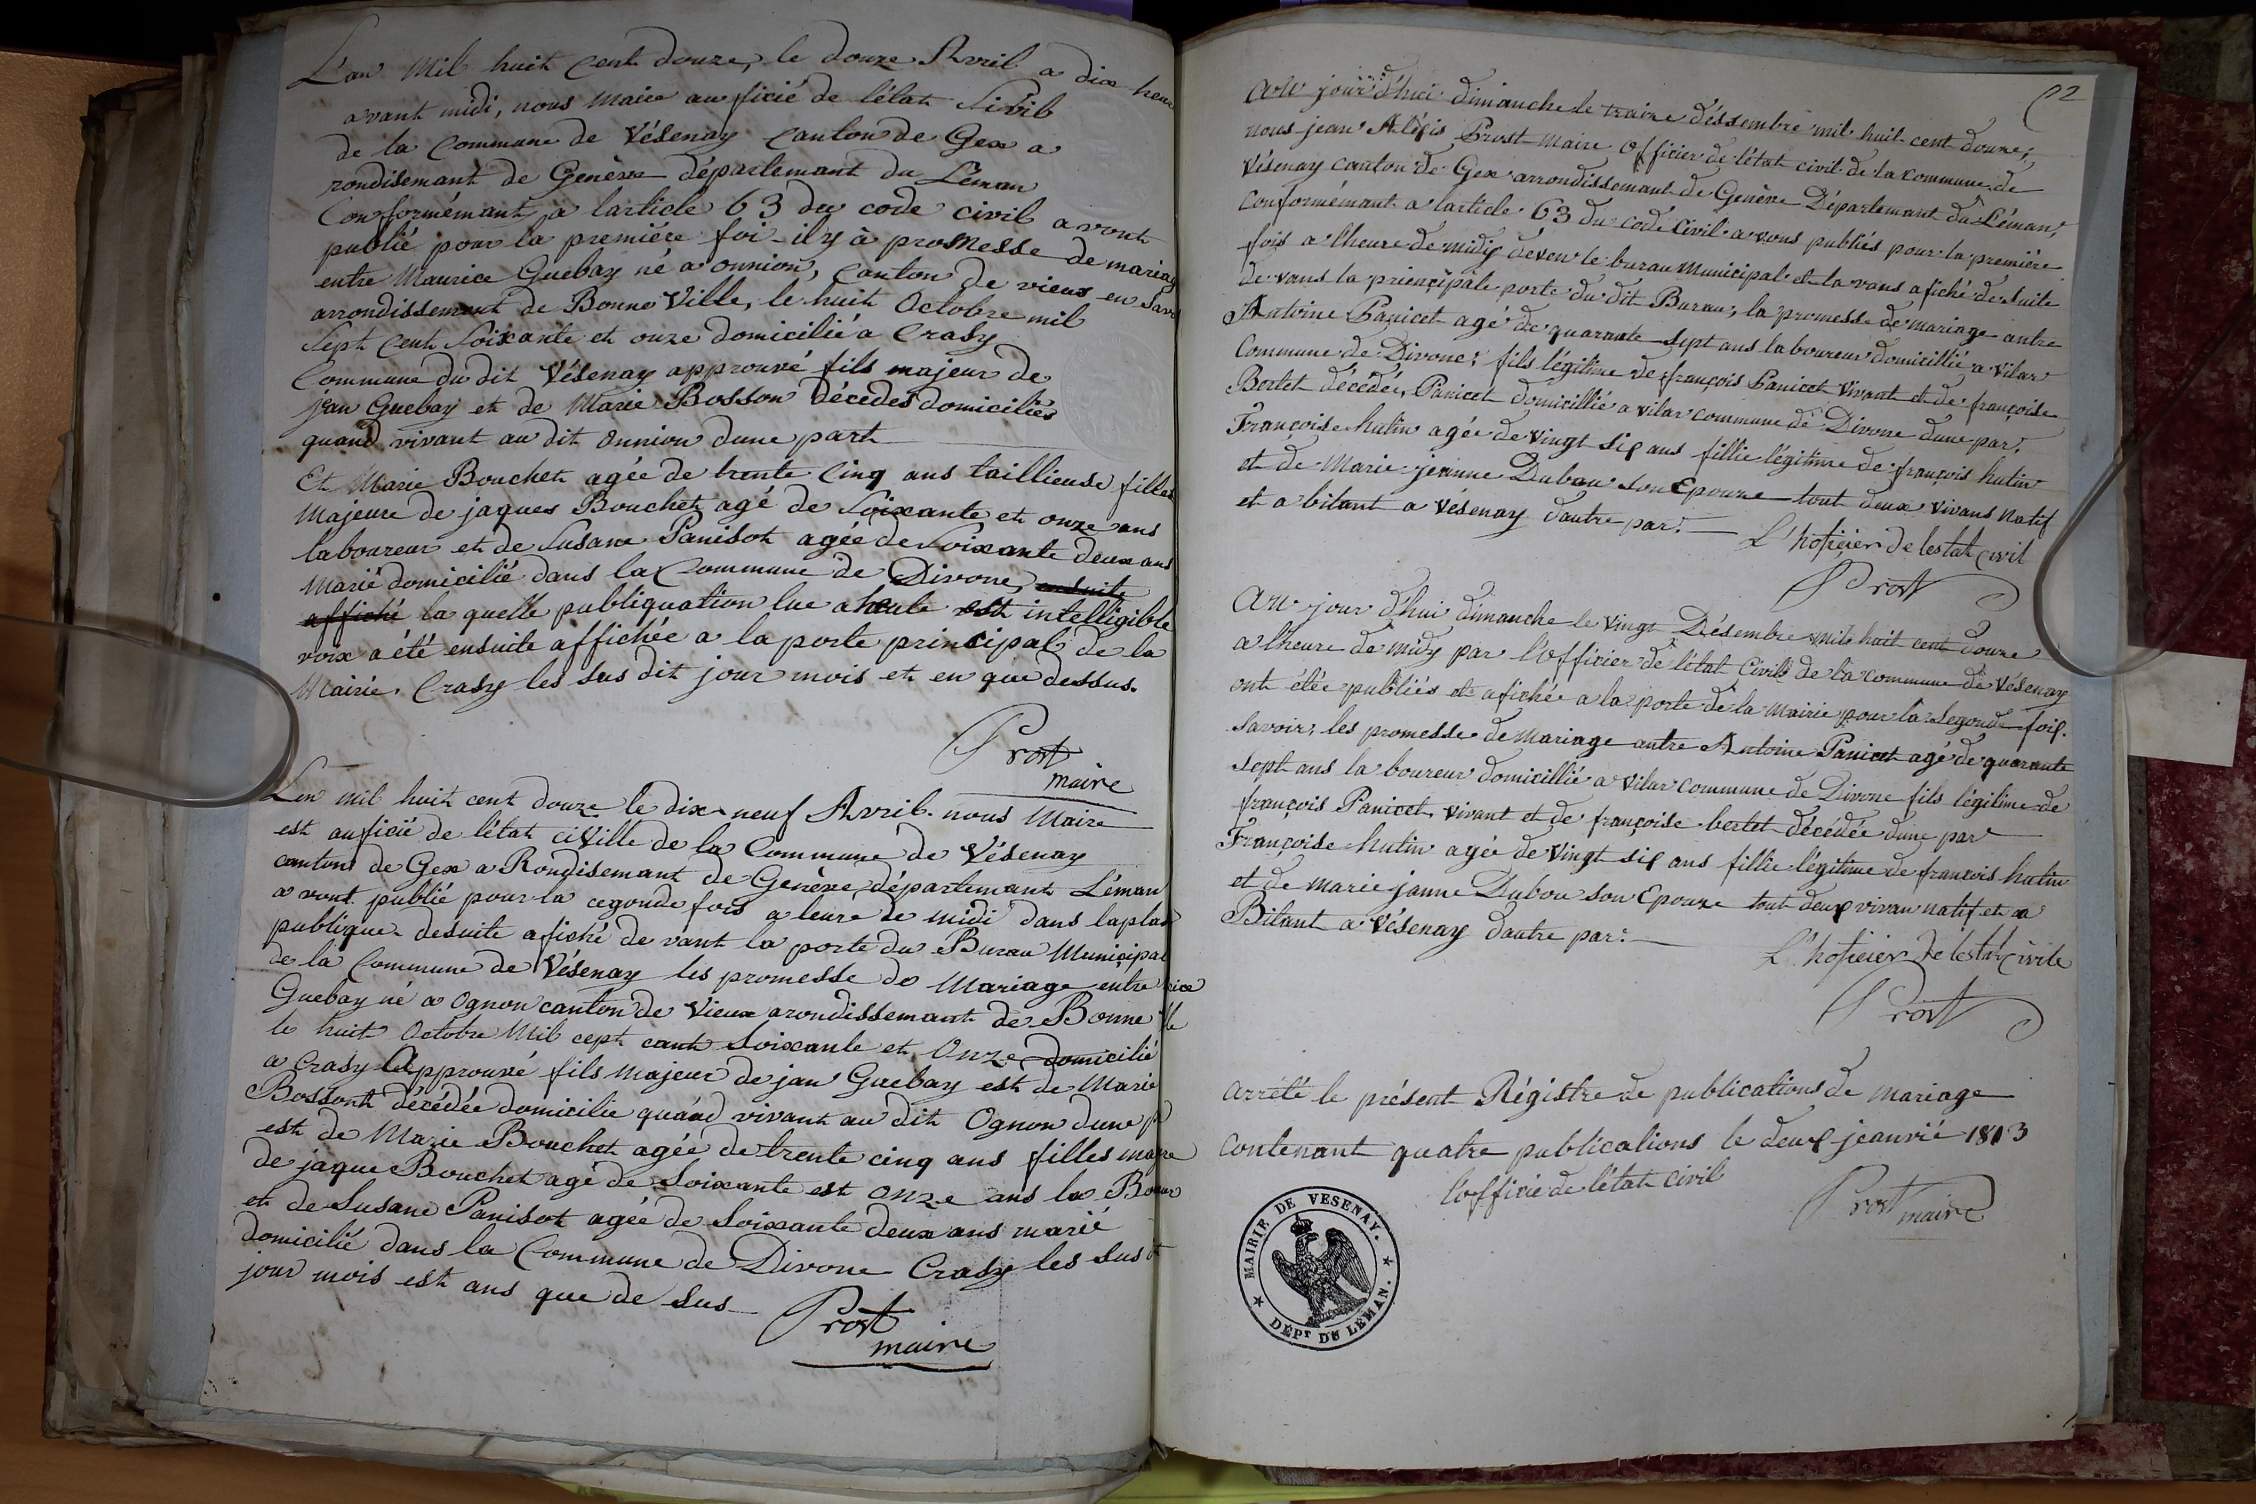 L'an Mil huit cent douze, le douze Avril a dix heur
avant midi, nous Maire auficié de l'état Sivil
de la Commune de Vésenay Canton de Gex a
rondisemant de Genève départemant du Léman
Conformémant a larticle 63 du code civil avont
publié pour la premiére foi il y à promesse de mariag
entre Maurice Guebay né a onnion, Canton de vieux en Sav
arrondissement de Bonne Ville, le huit Octobre mil
Sept Cent Soixante et onze domicilié a Crasy
Commune du dit Vésenay approuvé fils majeur de
jean Guebay et de Marie Bosson décédés domiciliés
quand vivant au dit onnion dune part
Et Marie Bouchet agée de trente cinq ans taillieuse filles
Majeure de jaques Bouchet agé de Soixante et onze ans
laboureur et de Susane Panisot agée de Soixante deux ans
Marié domicilié dans la Commune de Divone, ensuite
affiché la quelle publiquation lue a haute est intelligible
voix a été ensuite affichée a la porte principal de la
Mairie. Crasy les sus dit jour mois et en que dessus.
Prost
maire
Len mil huit cent douze le dix neuf Avril. nous Maire
est auficié de l'état ciVille de la Commune de Vésenay
canton de Gex a Rondisemant de Genève, départemant Léman
a vont publié pour la cegonde fois a leure de midi dans la plac
publique desuite afiché de vant la porte du Bureau Municipal
de la Commune de Vésenay les promesse de Mariage entre rice
Guebay né a Ognon canton de Vieux arondissemant de Bonne lle
le huit Octobre Mil cept cant Soixante et Onze domicilié
a Crasy Approuvé fils majeur de jan Guebay est de Marie
Bossont décédée domicilie quand vivant au dit Ognon dune p
est de Marie Bouchet agée de trente cinq ans filles majre
de jaque Bouchet agé de Soixante est onze ans la Bour
et de Susane Panisot agée de Soixante deux ans marié
domicilié dans la Commune de Divone Crasy les sus t
jour mois est ans que de sus
Prost
maire
92
Au jour d'hui dimanche le traize déssembre mil huit cent douze;
nous jean Aléxis Prost Maire officier de l'état civil de la commune de
Vésenay canton de Gex arrondissemant de Genève Départemant du Léman;
Conformémant a larticle 63 du code Civil avons publiés pour la premiére
fois a lheure de midy deven le burau Municipal et la vons afiché de suite
de vans la prinçipale porte du dit Burau; la promesse de mariage antre
Antoine Panicet agé de quarante sept ans laboureur domicillié a vilar
Commune de Divone; fils légitime de françois Panicet vivant et de françoise
Bertet décédée, Panicet domicillié a vilar commune de Divone dune par;
Françoise hutin agée de vingt six ans fillie légitime de françois hutin
et de Marie jeanne Dubau son Epouze tout deux vivans natif
et a bitant a Vésenay dautre par:
L'hoficier de lestat civil
Prost
Au jour d'hui dimanche le vingt Désembre mil huit cent douze
a lheure de midy par l'officier de l'état Civil de la commune de Vésenay
ont étée publiés et afichée a la porte de la Mairie pour la Segonde fois.
Savoir; les promesse de mariage antre Antoine Panicet agé de quarante
sept ans la boureur domicillié a Vilar commune de Divone fils légitime de
françois Panicet vivant et de françoise bertet décédée dune par
Françoise hutin agée de Vingt six ans fillie légitime de françois hutin
et de marie janne Dubou son Epouze tout deux vivan natif et a
Bitant a Vésenay dautre par:
L'hoficier de lestat civile
Prost
arrété le présent Régistre de publications de mariage
contenant quatre publications le deux jeanvié 1813
l'officié de l'état civil
Prost
maire
MAIRIE DE VESENAY.
DÉPT DU LÉMAN.